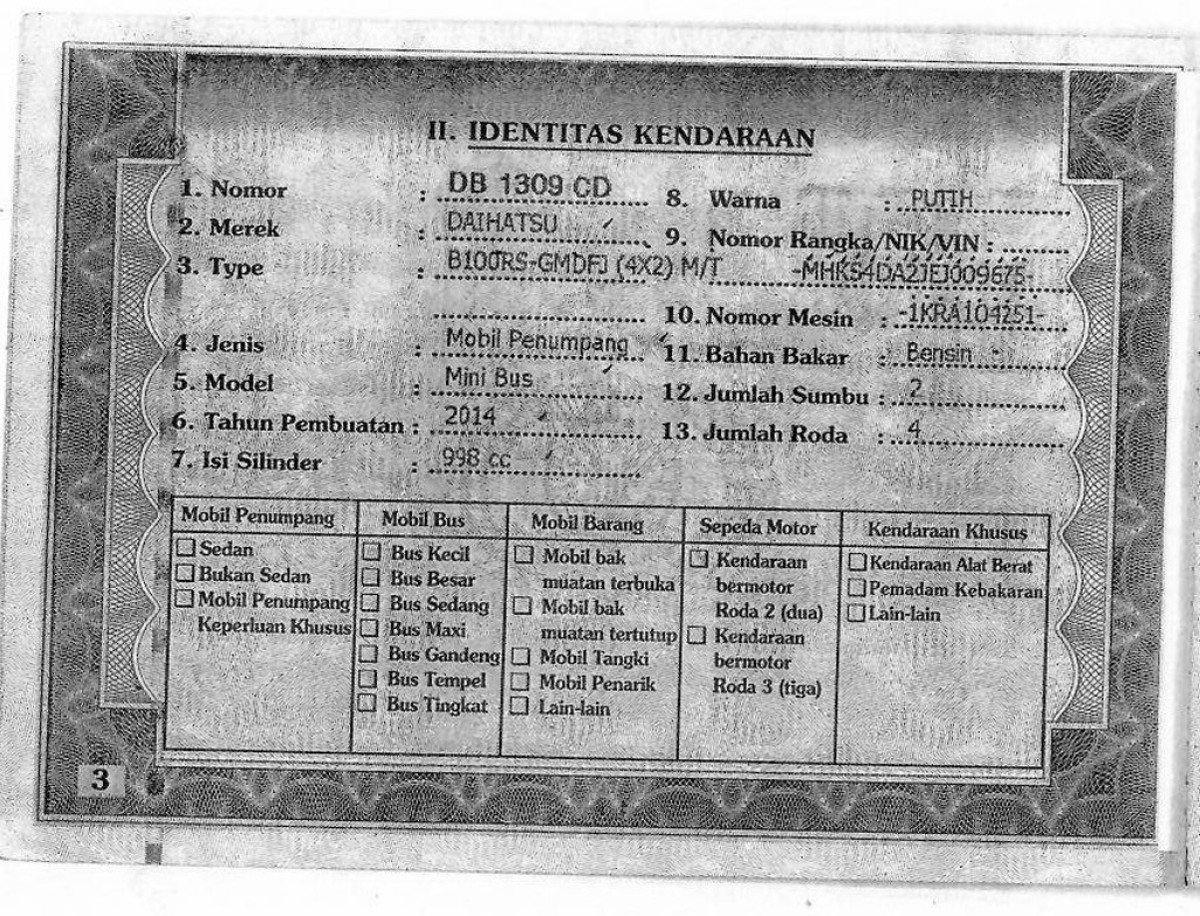 II. IDENTITAS KENDARAAN
1. Nomor : DB 1309 CD
2. Merek : DAIHATSU
3. Type : B100RS-GMDFJ (4X2) M/T
4. Jenis : Mobil Penumpang
5. Model : Mini Bus
6. Tahun Pembuatan : 2014
7. Isi Silinder : 998 cc
8. Warna : PUTIH
9. Nomor Rangka/NIK/VIN :
-MHKS4DA2JEJ009675-
10. Nomor Mesin : -1KRA104251-
11. Bahan Bakar : Bensin -
12. Jumlah Sumbu : 2
13. Jumlah Roda : 4
Mobil Penumpang
Sedan
Bukan Sedan
Mobil Penumpang
Keperluan Khusus
Mobil Bus
Bus Kecil
Bus Besar
Bus Sedang
Bus Maxi
Bus Gandeng
Bus Tempel
Bus Tingkat
Mobil Barang
Mobil bak
muatan terbuka
Mobil bak
muatan tertutup
Mobil Tangki
Mobil Penarik
Lain-lain
Sepeda Motor
Kendaraan
bermotor
Roda 2 (dua)
Kendaraan
bermotor
Roda 3 (tiga)
Kendaraan Khusus
Kendaraan Alat Berat
Pemadam Kebakaran
Lain-lain
3